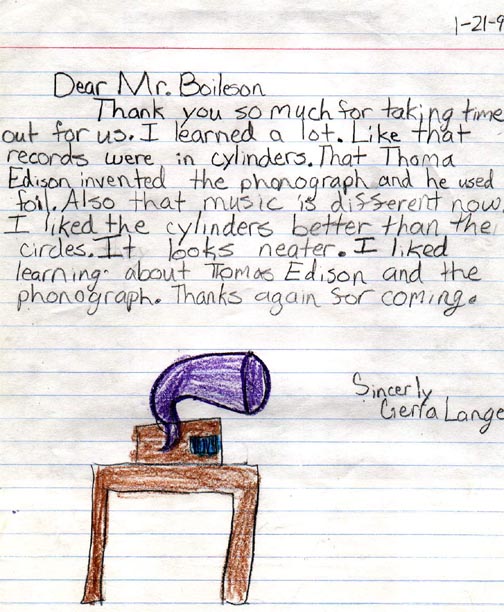 1-21-9
Dear Mr. Boileson
Thank you so much for taking time
out for us. I learned a lot. Like that
records were in cylinders. That Thoma
Edison invented the phonograph and he used
foil. Also that music is different now.
I liked the cylinders better than the
circles. It looks neater. I liked
learning about Thomas Edison and the
phonograph. Thanks again for coming.
Sincerly
Gerta Lange